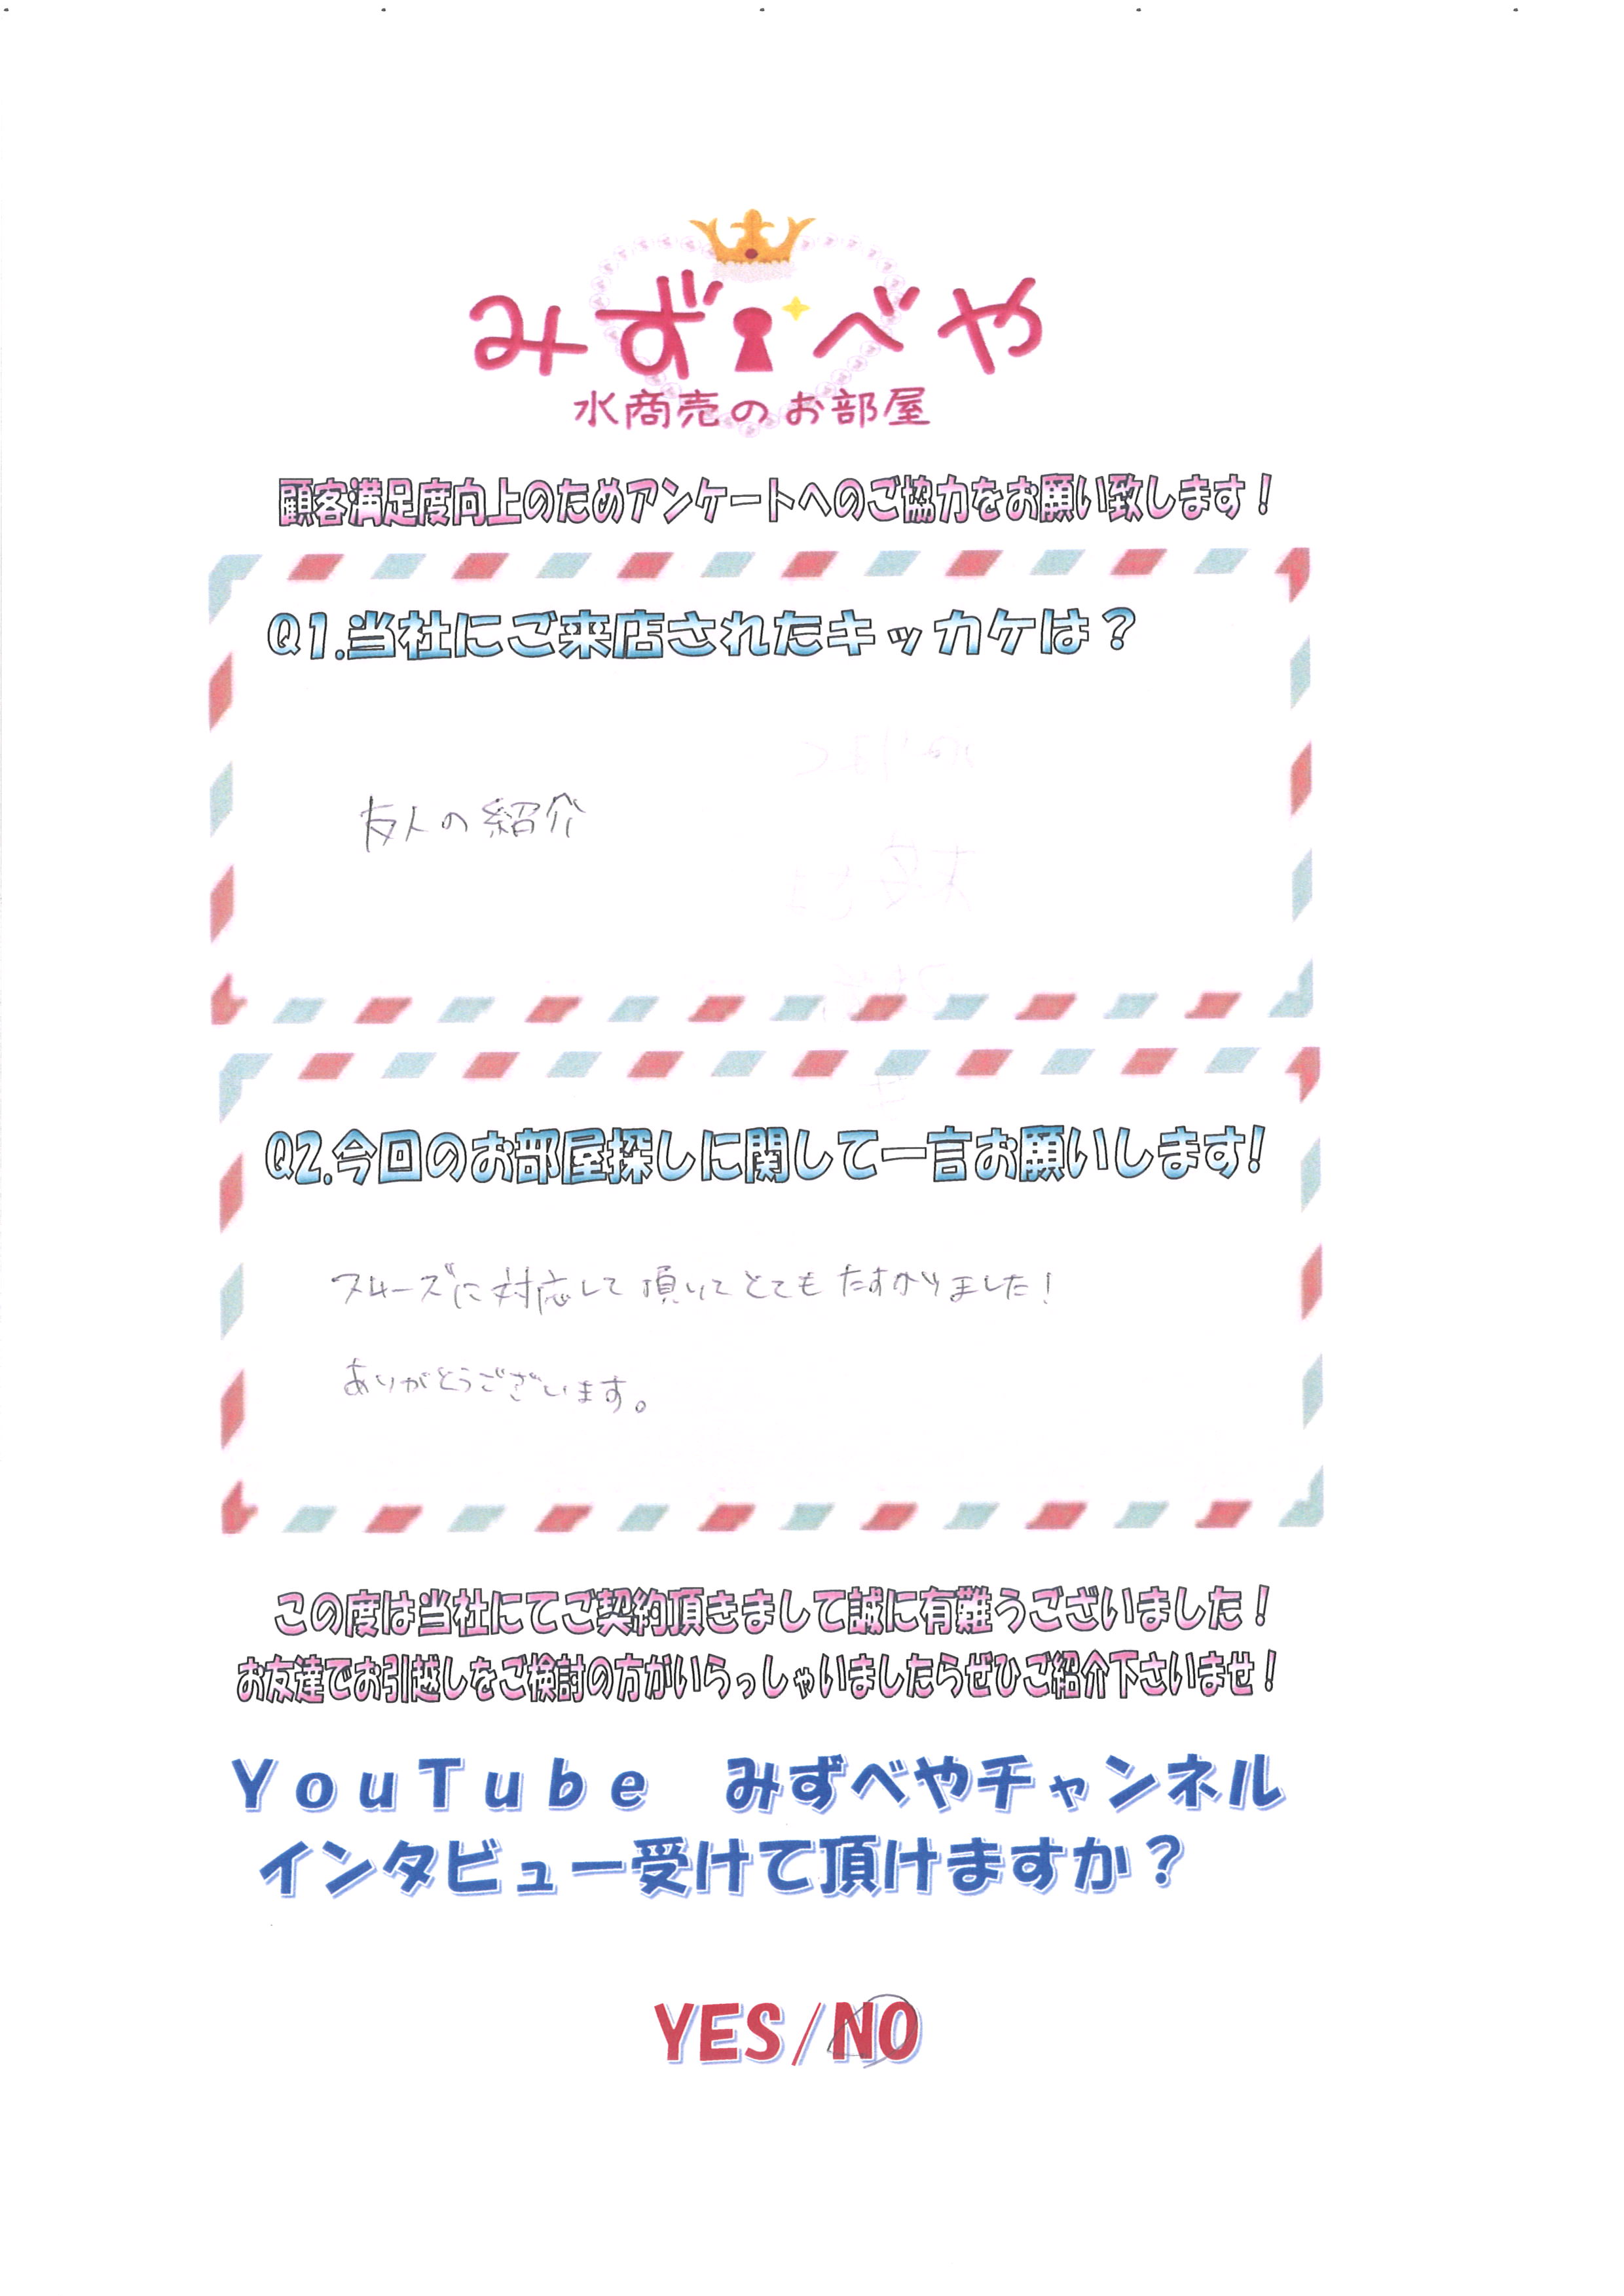 みずべや
水商売のお部屋
顧客満足度向上のためアンケートへのご協力をお願い致します!
Q1.当社にご来店されたキッカケは?
友人の紹介
Q2.今回のお部屋探しに関して一言お願いします!
スムーズに対応して頂いてとてもたすかりました!
ありがとうございます。
この度は当社にてご契約頂きまして誠に有難うございました!
お友達でお引越しをご検討の方がいらっしゃいましたらぜひご紹介下さいませ!
YouTube みずべやチャンネル
インタビュー受けて頂けますか?
YES/NO